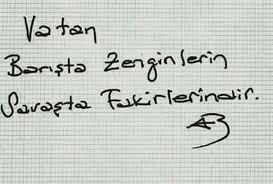 Vatan
Barışta Zenginlerin
Savaşta Fakirlerindir.